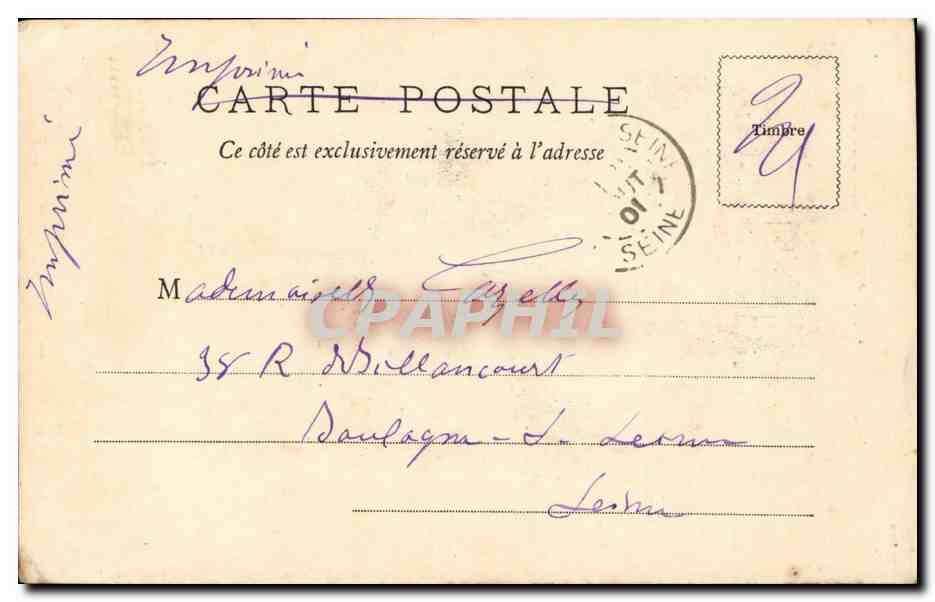 Imprimé
CARTE POSTALE
Ce côté est exclusivement réservé à l'adresse
Timbre
Imprimé
SEINE
01
SEINE
Mademoiselle Cazelles
CPAPHIL
38 R de Billancourt
Boulogne - s - Seine
Seine